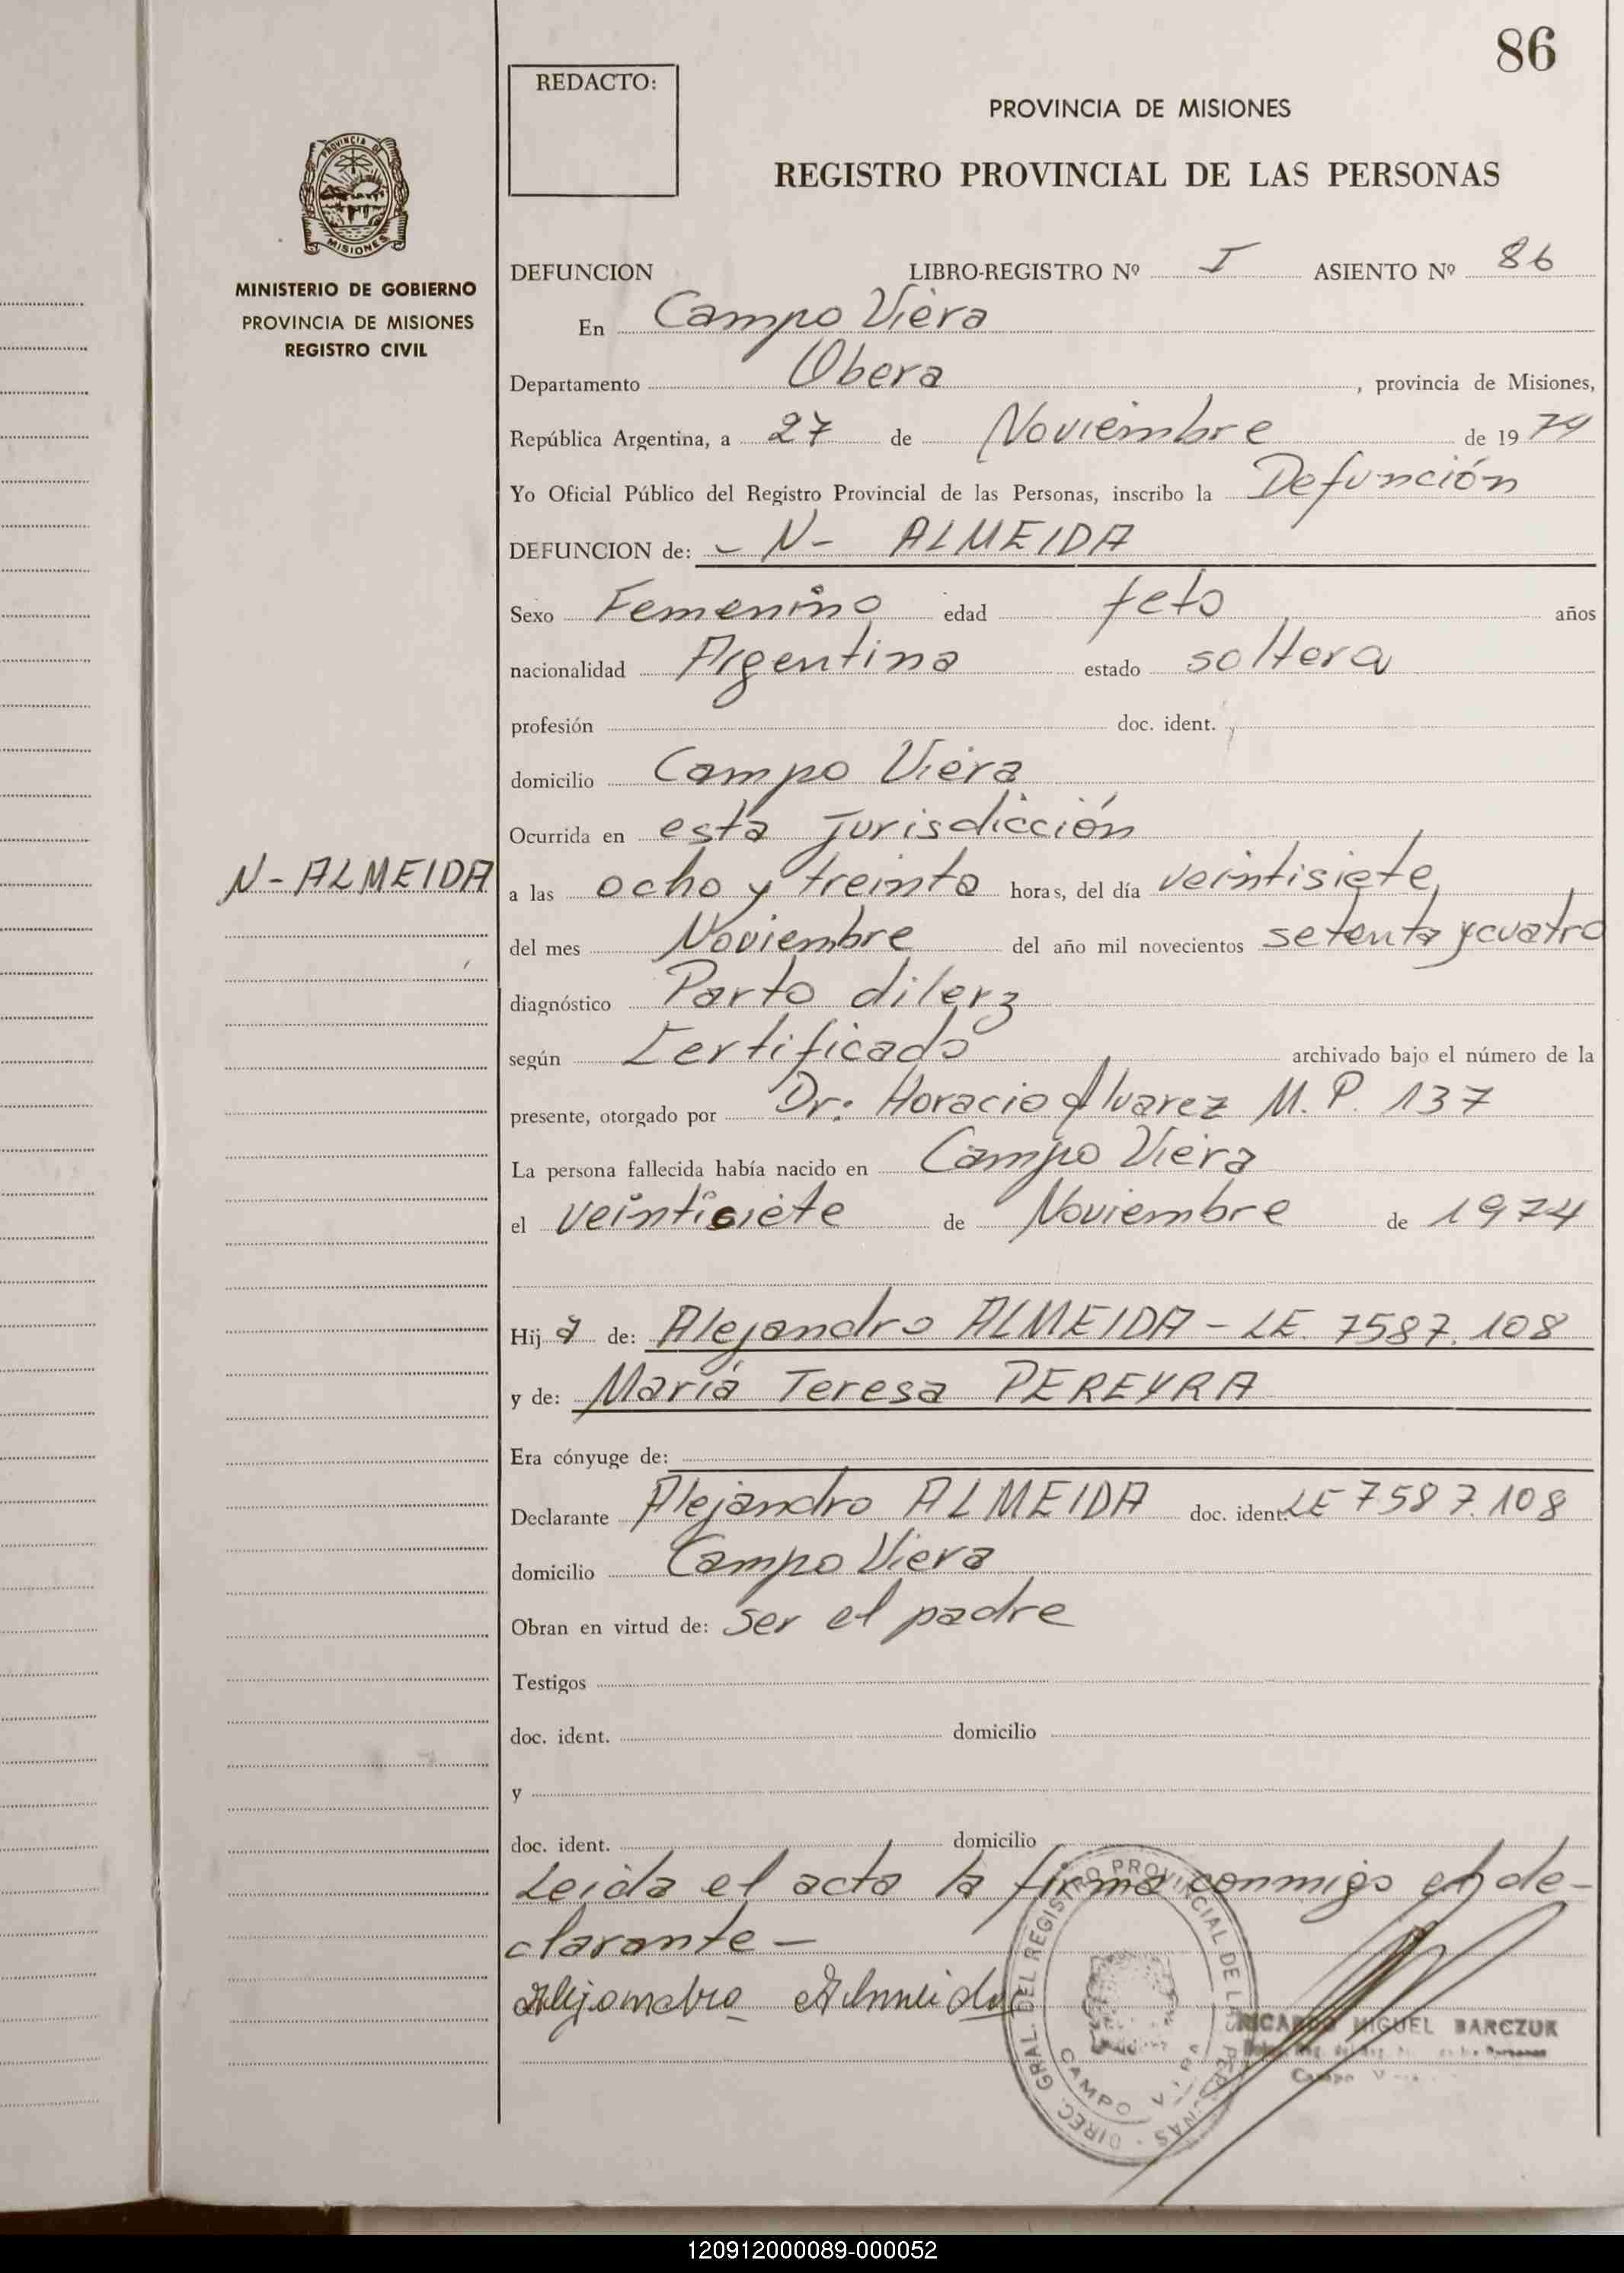 86
REDACTO:
PROVINCIA DE MISIONES
REGISTRO PROVINCIAL DE LAS PERSONAS
PROVINCIA DE
MISIONES
MINISTERIO DE GOBIERNO
PROVINCIA DE MISIONES
REGISTRO CIVIL
DEFUNCION LIBRO-REGISTRO Nº I ASIENTO Nº 86
En Campo Viera
Departamento Obera, provincia de Misiones,
República Argentina, a 27 de Noviembre de 1974
Yo Oficial Público del Registro Provincial de las Personas, inscribo la Defunción
DEFUNCION de: - N - ALMEIDA
Sexo Femenino edad feto años
nacionalidad Argentina estado soltera
profesión doc. ident.
domicilio Campo Viera
Ocurrida en esta Jurisdicción
N - ALMEIDA
a las ocho y treinta horas, del día veintisiete
del mes Noviembre del año mil novecientos setenta y cuatro
diagnóstico Parto
según Certificado archivado bajo el número de la
presente, otorgado por Dr: Horacio Alvarez M. P. 137
La persona fallecida había nacido en Campo Viera
el veintisiete de Noviembre de 1974
Hija de: Alejandro ALMEIDA - LE. 7587.108
y de: María Teresa PEREYRA
Era cónyuge de:
Declarante Alejandro ALMEIDA doc. ident. LE 7587.108
domicilio Campo Viera
Obran en virtud de: Ser el padre
Testigos
doc. ident. domicilio
y
doc. ident. domicilio
Leida el acta la firma conmigo el de-
clarante -
Alejandro Almeida
DIREC. GRAL. DEL REGISTRO PROVINCIAL DE LAS PERSONAS
CAMPO VIERA
RICARDO MIGUEL BARCZUK
Campo
120912000089-000052